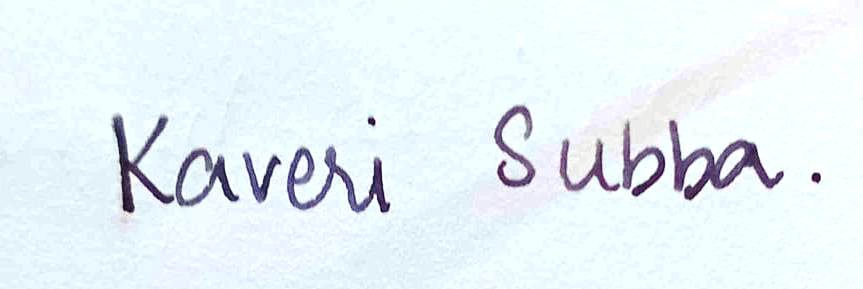 Kaveri Subba.